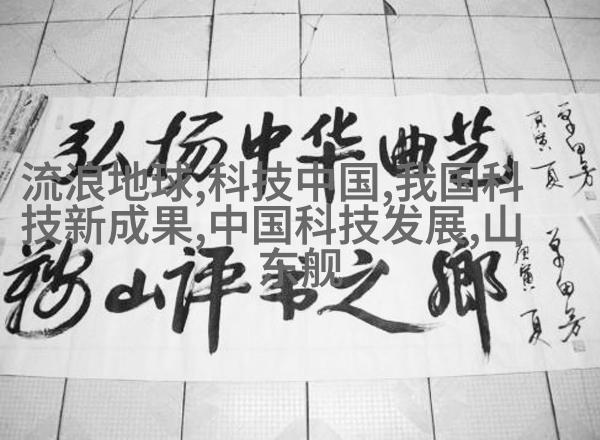 弘扬中华曲艺
庚寅夏 单田芳
流浪地球,科技中国,我国科
技新成果,中国科技发展,山
东舰
鞍山评书之鄉
庚寅夏 单田芳